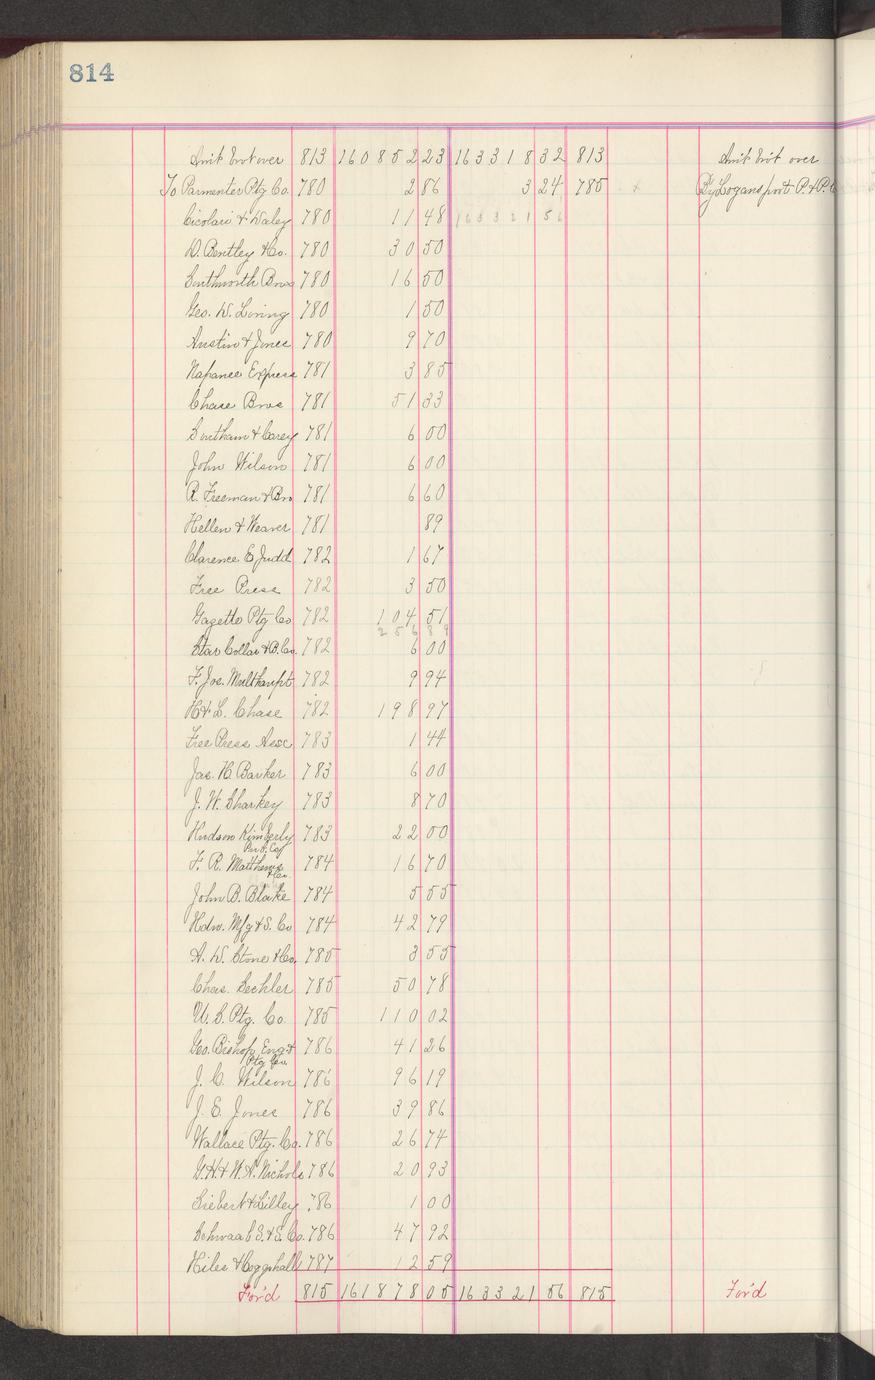 814
Amt brot over 813 160852 23 163318 32 813 Amt bro't over
To Parmenter Ptg Co. 780 2 86 3 24 785 By Logansport P. & P. C
& Daley 780 11 48 163321 56
D. Bentley & Co. 780 30 50
Southworth Bros 780 16 50
Geo. W. Loring 780 1 50
Austin & Jones 780 9 70
Napanee Express 781 3 85
Chase Bros 781 51 33
Southam & Carey 781 6 00
John Wilson 781 6 00
R. Freeman & Bro 781 6 60
Hellen & Weaver 781 89
Clarence E. Judd 782 1 67
Free Press 782 3 50
Gazette Ptg Co 782 104 51
256 89
Star Collar & B. Co. 782 6 00
F. Jos. Multhaupt 782 9 94
H & L. Chase 782 198 97
Free Press Assc 783 1 44
Jas. H. Barker 783 6 00
J. W. Sharkey 783 8 70
Hudson Kimberly 783 22 00
F. R. Matthews 784 16 70
& Co.
John B. Blake 784 5 55
Hdw. Mfg & S. Co 784 42 79
A. W. Stone & Co. 785 3 55
Chas. Sechler 785 50 78
U. S. Ptg. Co. 785 110 02
Geo. Bishop Eng & 786 41 26
Ptg Co.
J. C. Wilson 786 96 19
J. E. Jones 786 39 86
Wallace Ptg. Co. 786 26 74
G. H. & W. A. Nichols 786 20 93
Siebert & Lilley 786 1 00
Schwaab S. & S. Co. 786 47 92
Hiles & Coggshall 787 12 59
For'd 815 161878 05 163321 56 815 For'd